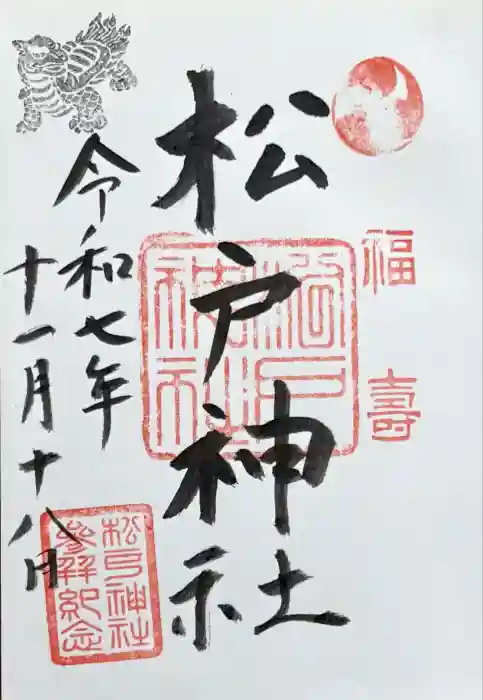 福
壽
松戸神社
松戸神社
令和七年
十一月十八日
松戸神社
參拜紀念